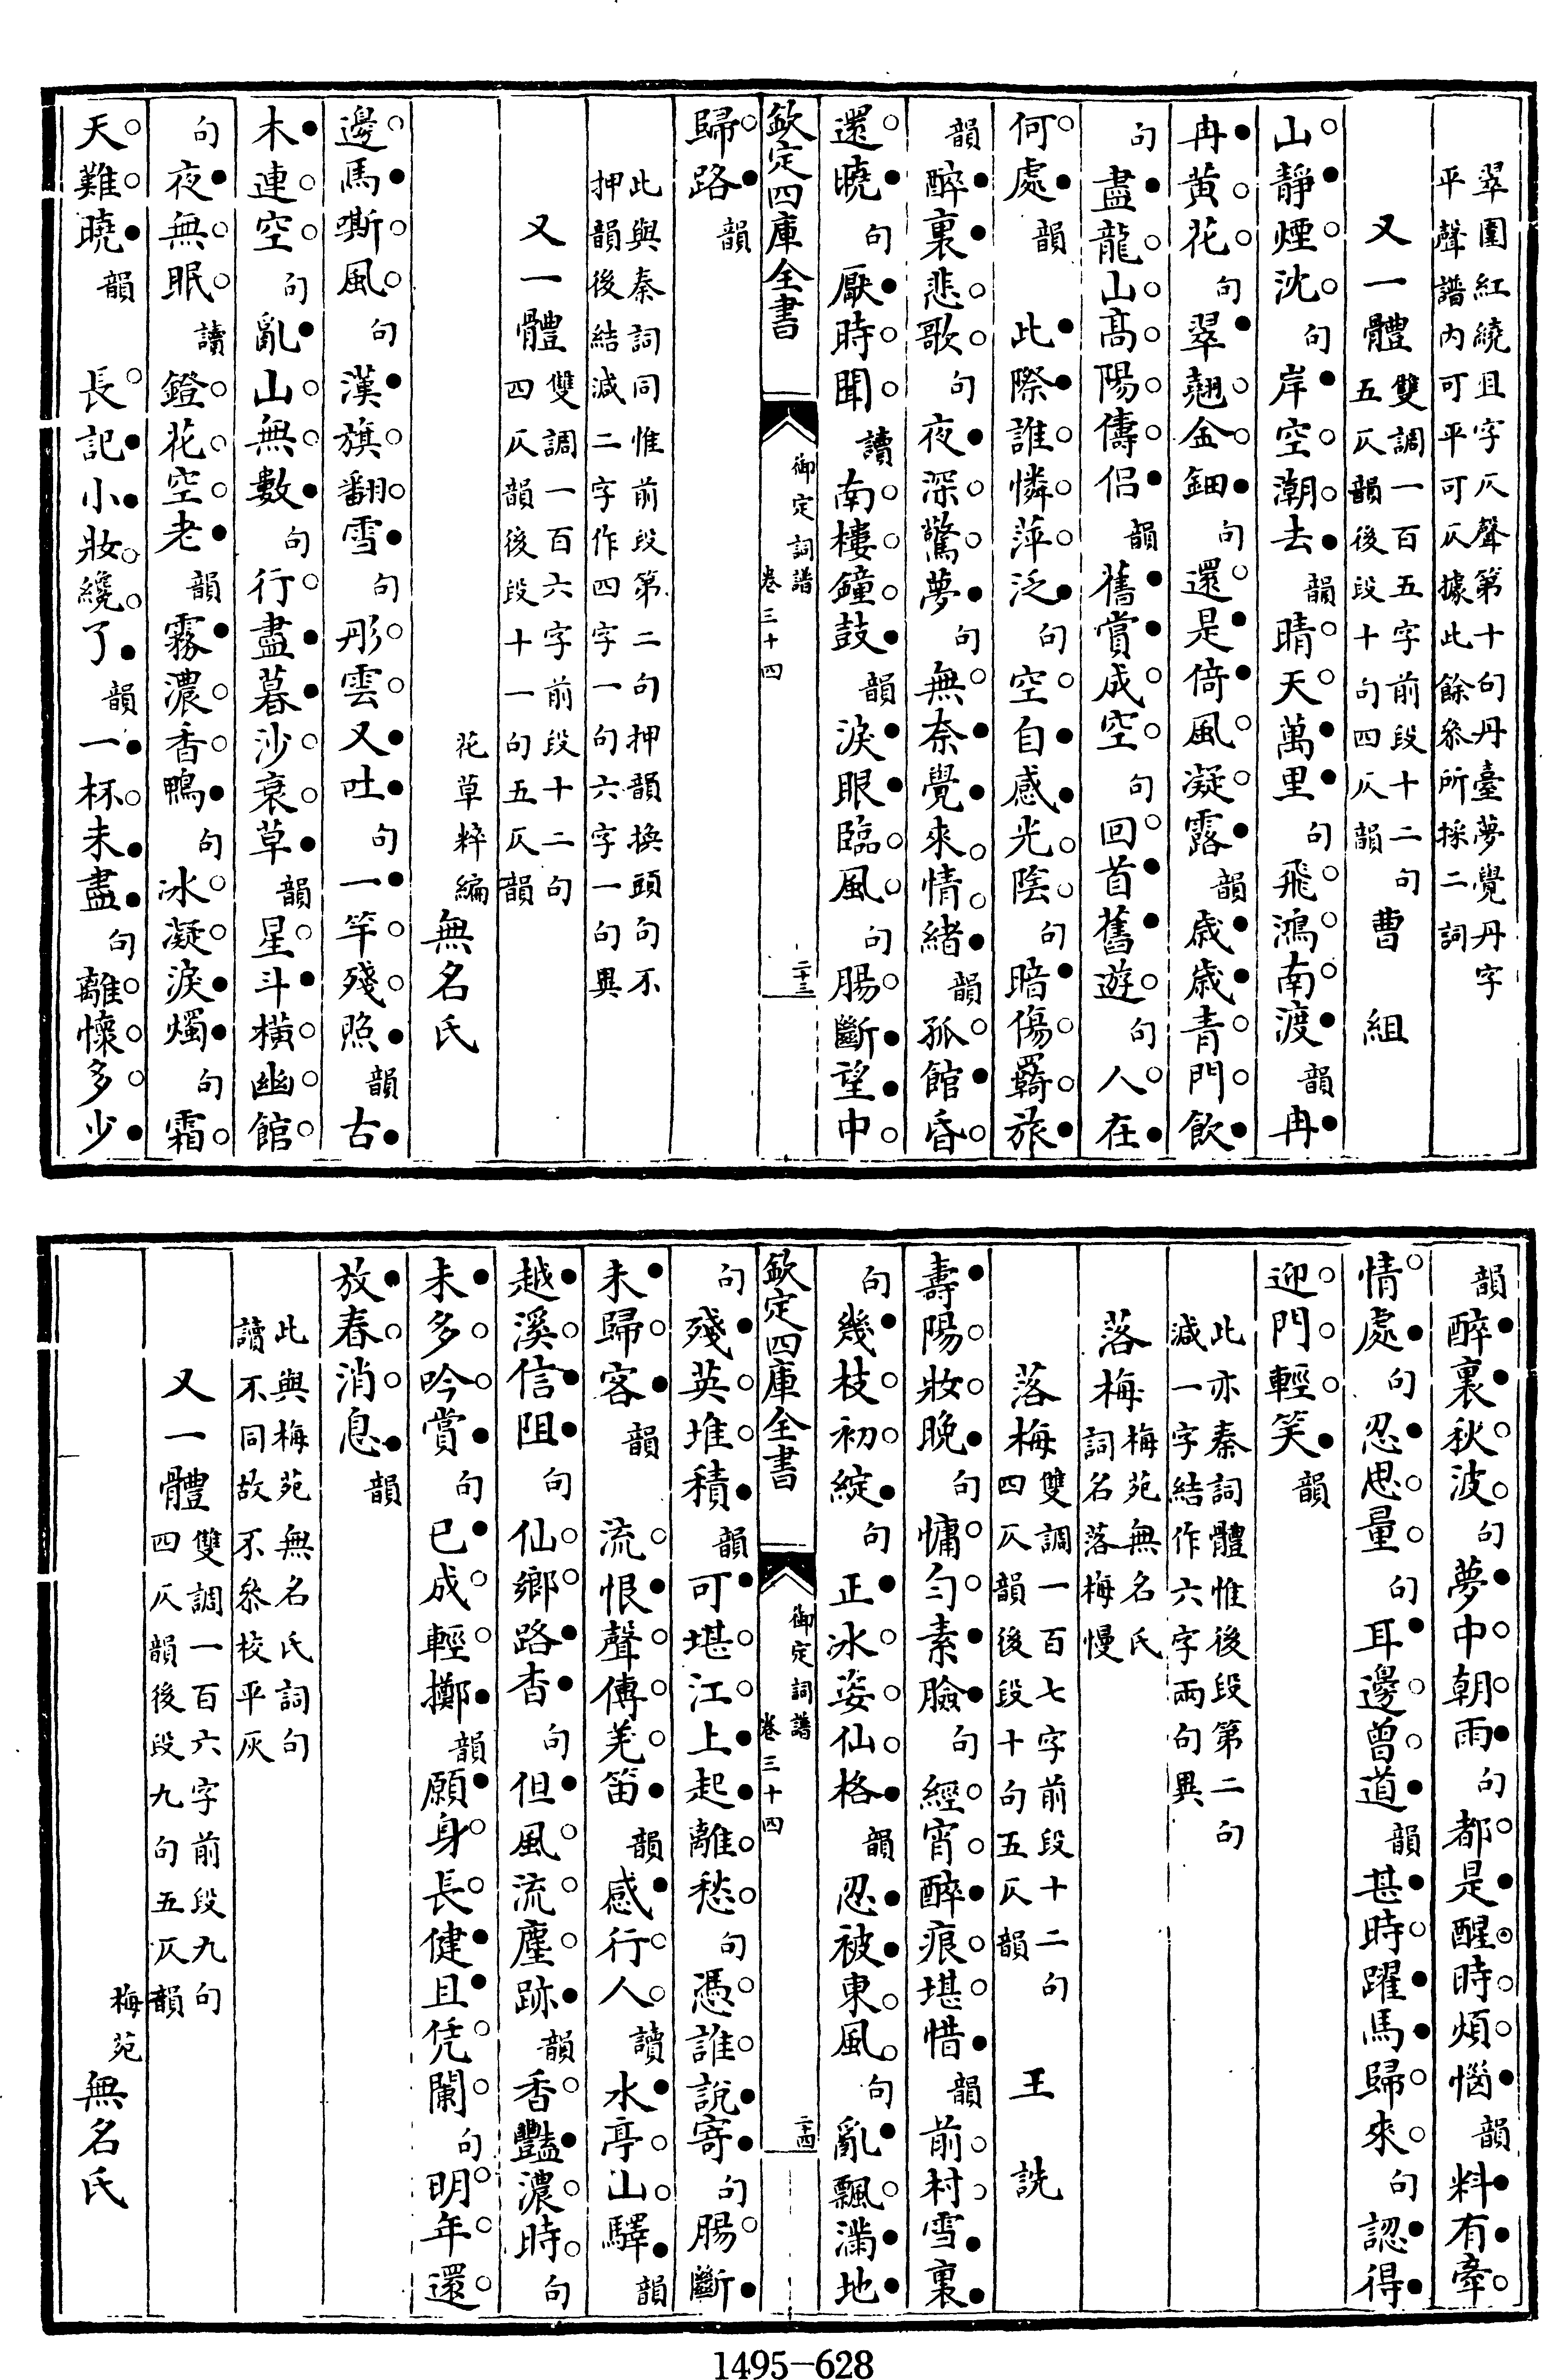 翠圍紅繞且字仄聲第十句丹臺夢覺丹字
平聲譜内可平可仄據此餘參所採二詞
又一體雙調一百五字前段十二句
五仄韻後段十句四仄韻 曹組
山靜煙沈句岸空潮去韻晴天萬里句飛鴻南渡韻冉
冉黄花句翠翹金鈿句還是倚風凝露韻歲歲青門飲
句盡龍山高陽儔侣韻舊賞成空句回首舊遊句人在
何處韻 此際誰憐萍泛句空自感光陰句暗傷羈旅
韻醉裏悲歌句夜深驚夢句無奈覺來情緒韻孤館昏
還曉句厭時聞讀南樓鐘鼓韻淚眼臨風句腸斷望中
欽定四庫全書 御定詞譜 卷三十四 二十三
歸路韻
此與秦詞同惟前段第二句押韻換頭句不
押韻後結減二字作四字一句六字一句異
又一體雙調一百六字前段十二句
四仄韻後段十一句五仄韻
花草粹編無名氏
邊馬嘶風句漢旗翻雪句彤雲又吐句一竿殘照韻古
木連空句亂山無數句行盡暮沙衰草韻星斗橫幽館
句夜無眠讀鐙花空老韻霧濃香鴨句冰凝淚燭句霜
天難曉韻 長記小妝纔了韻一杯未盡句離懷多少
韻醉裏秋波句夢中朝雨句都是醒時煩惱韻料有牽
情處句忍思量句耳邊曾道韻甚時躍馬歸來句認得
迎門輕笑韻
此亦秦詞體惟後段第二句
減一字結作六字兩句異
落梅梅苑無名氏
詞名落梅慢
落梅雙調一百七字前段十二句
四仄韻後段十句五仄韻 王詵
壽陽妝晚句慵勻素臉句經宵醉痕堪惜韻前村雪裏
句幾枝初綻句正冰姿仙格韻忍被東風句亂飄滿地
欽定四庫全書 御定詞譜 卷三十四 二十四
句殘英堆積韻可堪江上起離愁句憑誰說寄句腸斷
未歸客韻 流恨聲傳羌笛韻感行人讀水亭山驛韻
越溪信阻句仙鄉路杳句但風流塵跡韻香豔濃時句
未多吟賞句已成輕擲韻願身長健且凭闌句明年還
放春消息韻
此與梅苑無名氏詞句
讀不同故不參校平灰
又一體雙調一百六字前段九句
四仄韻後段九句五仄韻
梅苑無名氏
1495—628